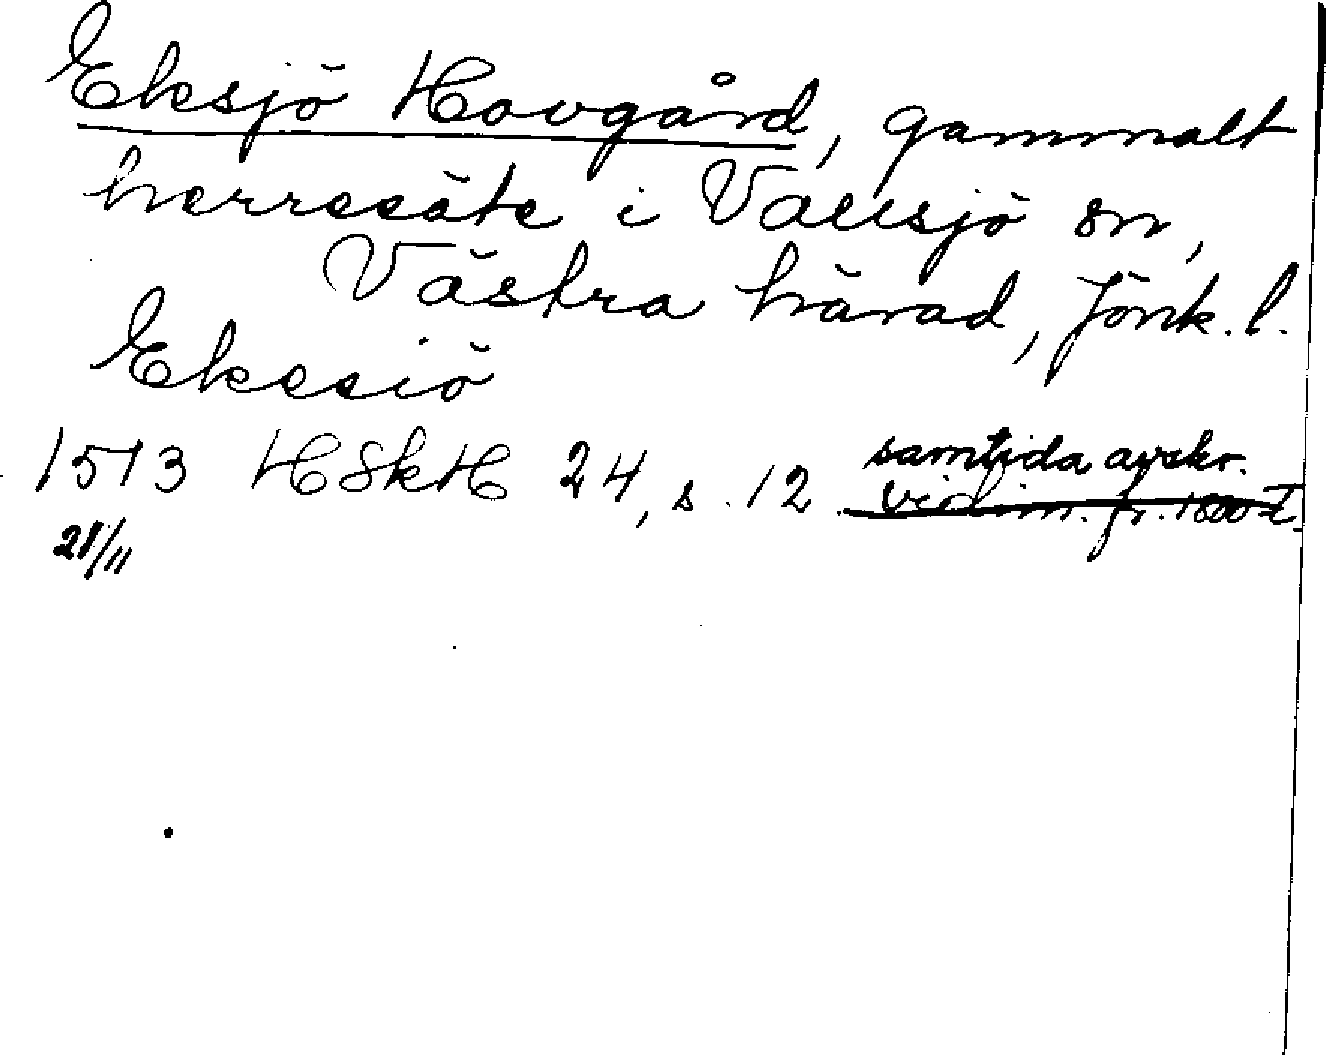 Eksjö Hovgård, gammalt
herresäte i Vallsjö sn,
Västra härad, Jönk. l.
Ekesiö
1513 HSkH 24, s. 12 samtida avskr.
vidim. fr. 1800-t.
21/11